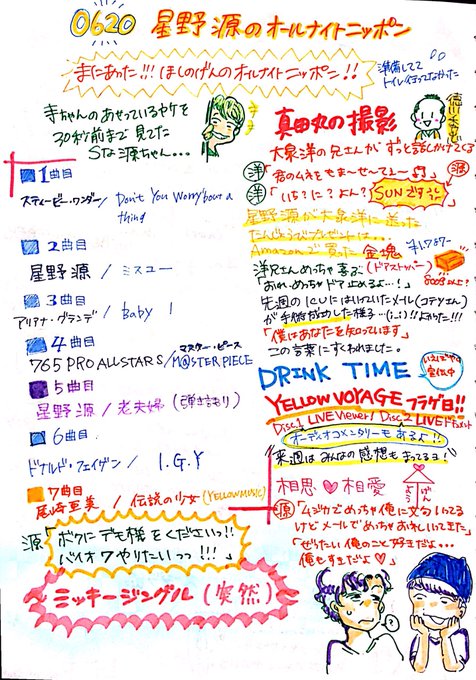 0620 星野源のオールナイトニッポン
まにあった!!! ほしのげんのオールナイトニッポン!!
準備してて
トイレ行ってなかった
寺ちゃんのあせっているヤケを
30秒前まで見てた
Sな源ちゃん...
1曲目
スティービー・ワンダー/ Don't You Worry 'bout a
thing
2曲目
星野源 / ミスユー
3曲目
アリアナ・グランデ / baby I
4曲目
マスター・ピース
765 PRO ALLSTARS / M@STER PIECE
5曲目
星野源 / 老夫婦 (弾き語り)
6曲目
ドナルド・フェイゲン / I.G.Y
7曲目
尾崎亜美 / 伝説の少女 (YELLOW MUSIC)
源「ボクにデモ様をくださいっ!!
バイオ7やりたいっっ!!!」
ミッキージングル (突然)
真田丸の撮影
大泉洋の兄さんがずっと話しかけてくる
洋「君のムネをもませ〜て♪」
洋「いち? に? よん?」
源
SUNですぅ
星野源が大泉洋に送った
たんじょうびプレゼントは...
Amazonで買った 金塊
(ドアストッパー)
洋兄さんめっちゃ喜ぶ
「おれ、めっちゃドア止めるよ...!」
先週の
にはいっていたメール(コテツさん)
が手術が成功した様子...(;_;)!!よかった!!!
「僕はあなたを知っています」
この言葉にすくわれました。
DRINK TIME
YELLOW VOYAGE フラゲ日!!
Disc1 LIVE Viewer! Disc2 LIVE
オーディオコメンタリーもあるよ!!
来週はみんなの感想もまってるヨ!
相思♡相愛
げん
源「ムジカでめっちゃ俺に文句いってる
けどメールでめっちゃおれいしてきた」
「ぜったい俺のこと好きだよ...
俺もすきだよ♡」